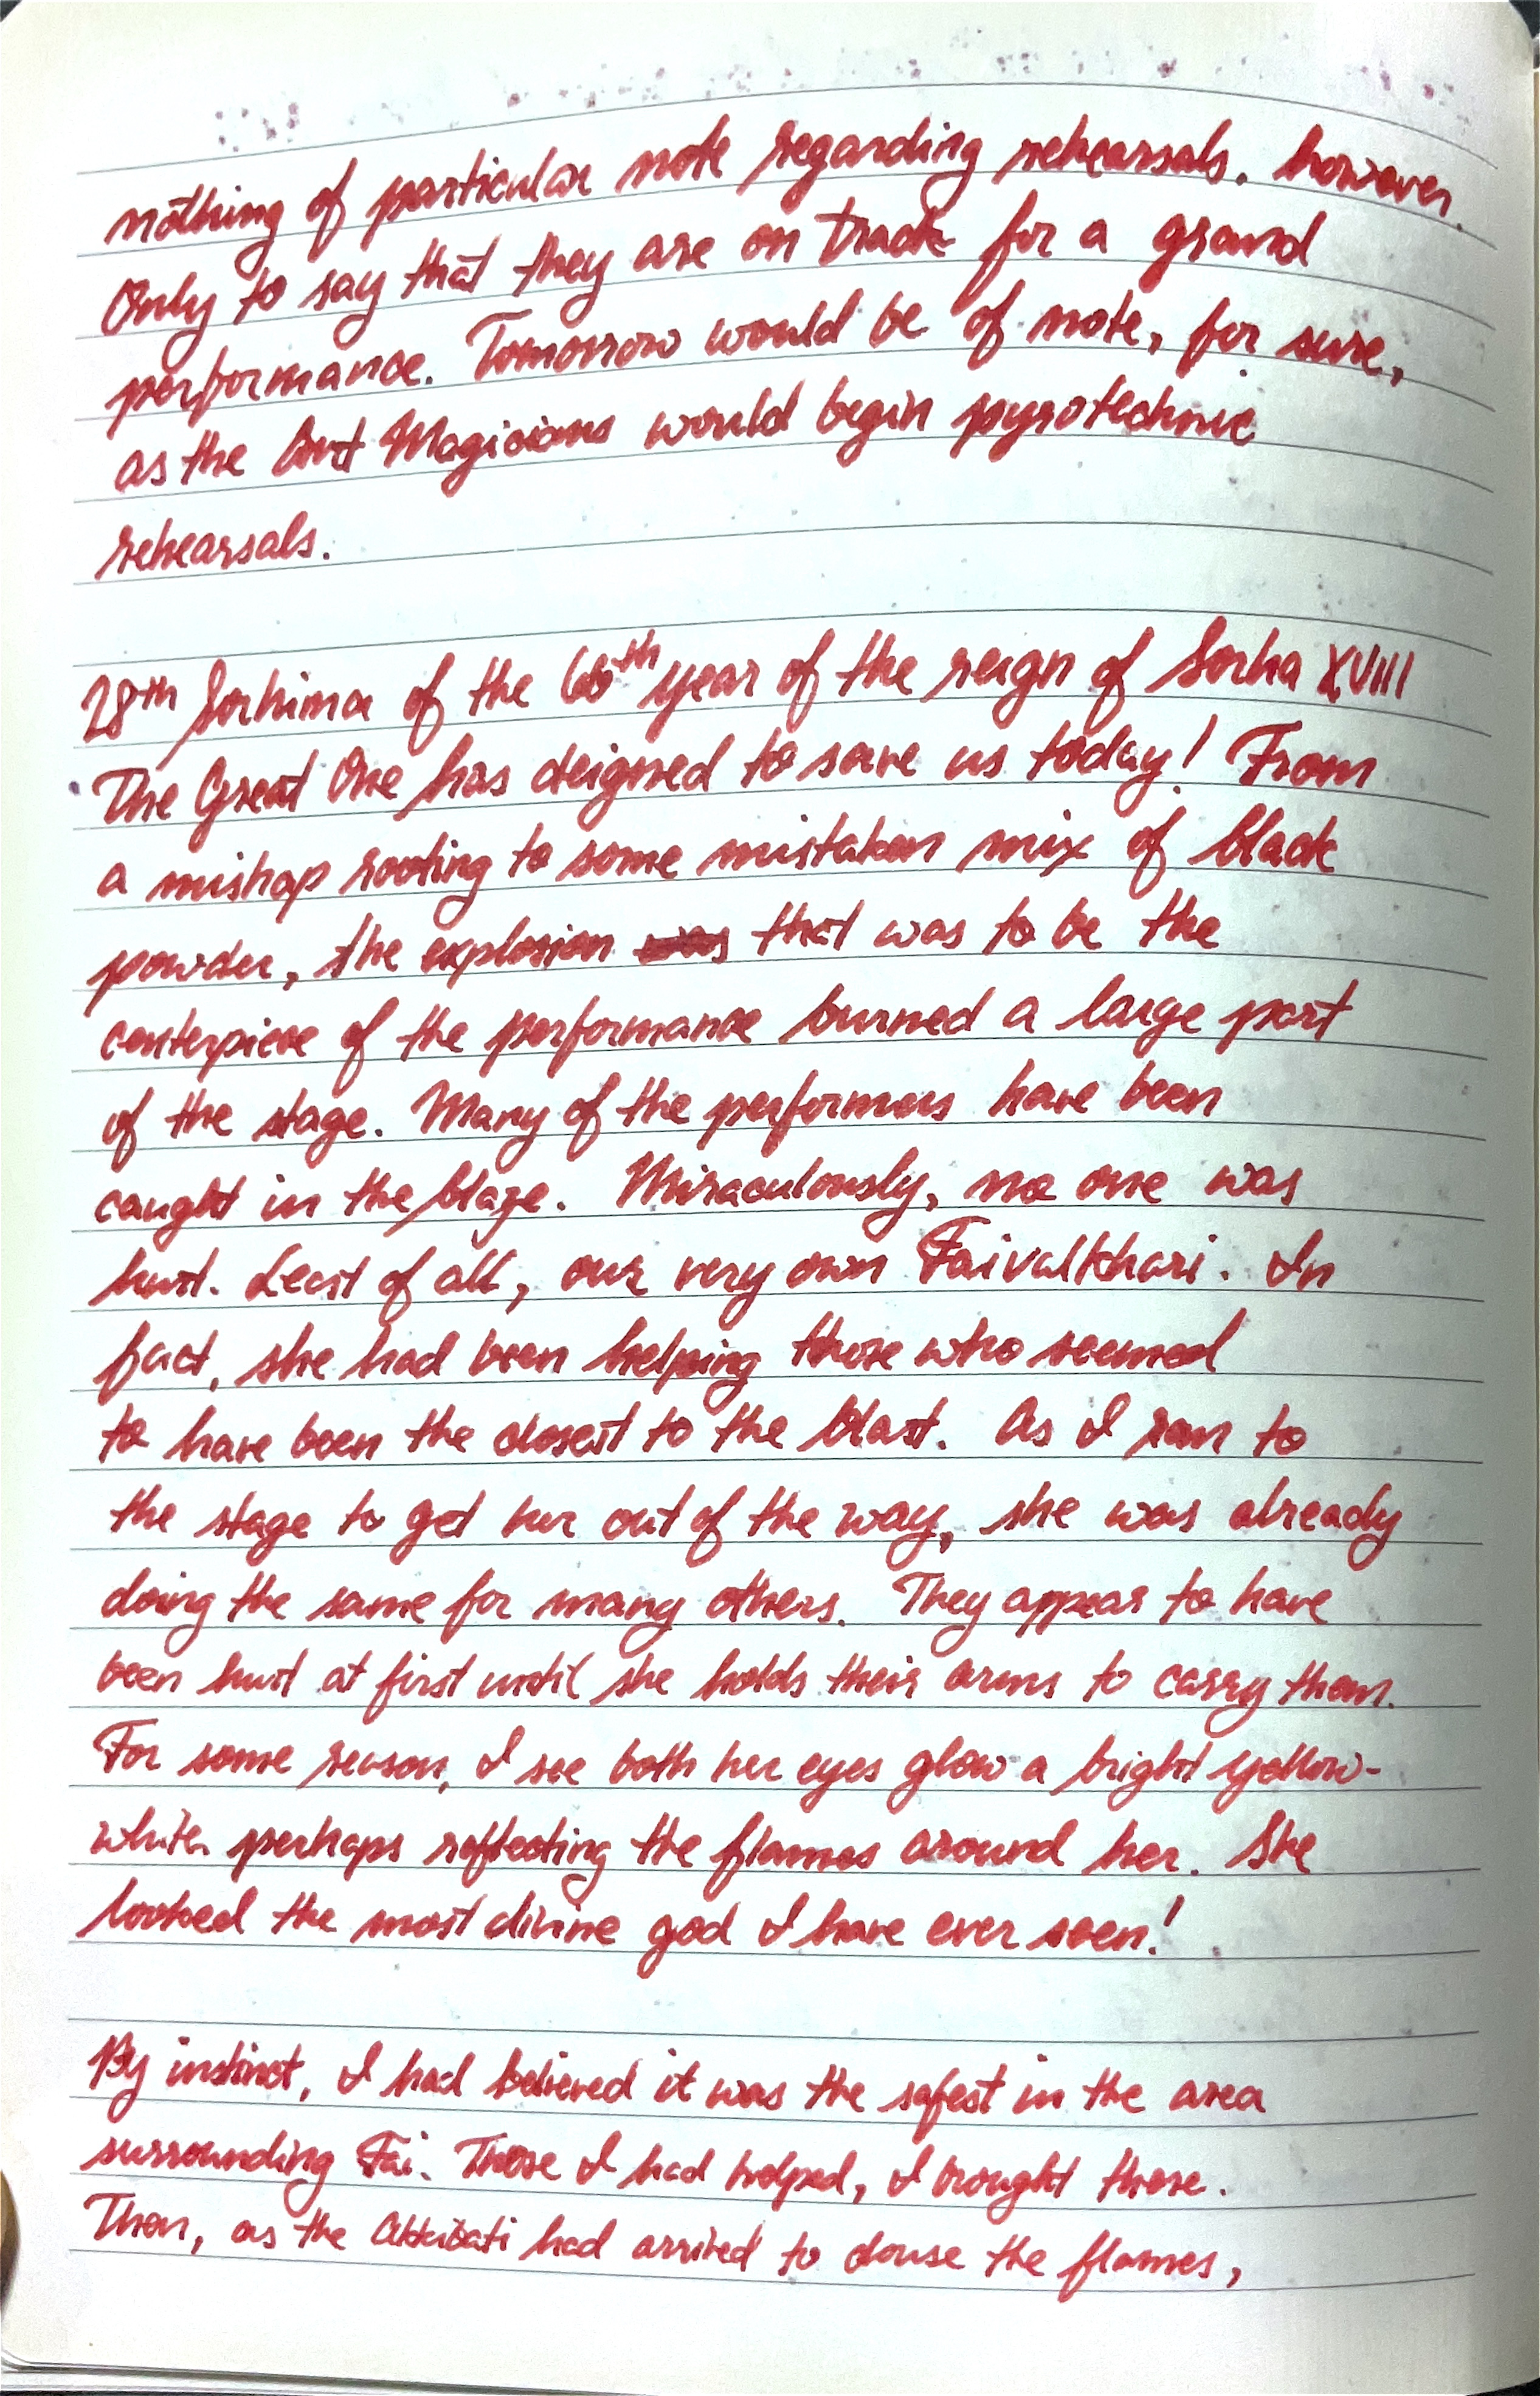 nothing of particular note regarding rehearsals, however.
Only to say that they are on track for a grand
performance. Tomorrow would be of note, for sure,
as the Art Magicians would begin pyrotechnic
rehearsals.
28th Sorhima of the 66th year of the reign of Sorha XVIII
The Great One has deigned to save us today! From
a mishap rooting to some mistaken mix of black
powder, the explosion that was to be the
centerpiece of the performance burned a large part
of the stage. Many of the performers have been
caught in the blaze. Miraculously, no one was
hurt. Least of all, our very own Faivalkhari. In
fact, she had been helping those who seemed
to have been the closest to the blast. As I ran to
the stage to get her out of the way, she was already
doing the same for many others. They appear to have
been hurt at first until she holds their arms to carry them.
For some reason, I see both her eyes glow a bright yellow-
white, perhaps reflecting the flames around her. She
looked the most divine god I have ever seen!
By instinct, I had believed it was the safest in the area
surrounding Fai. Those I had helped, I brought there.
Then, as the had arrived to douse the flames,